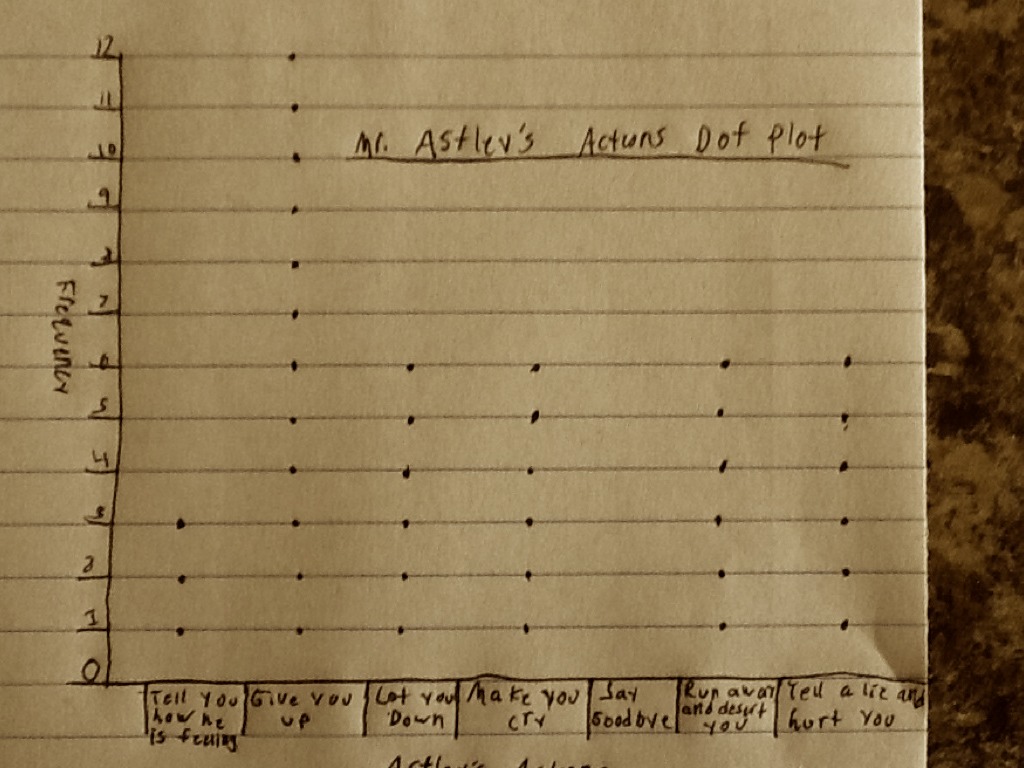 12
11
10
9
8
7
6
5
4
3
2
1
0
Frequency
Mr. Astley's Actions Dot Plot
Tell you
how he
is feeling
Give you
up
Let you
Down
Make you
cry
Say
Goodbye
Run away
and desert
you
Tell a lie and
hurt you
Astley's Actions